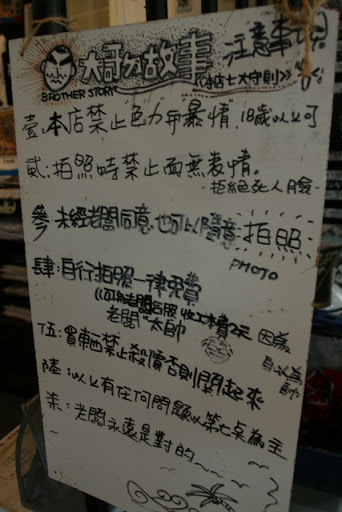 大哥ㄉ故事 注意事項
BROTHER STORY 《本店七大守則》
壹:本店禁止色力卡暴情,18歲以上可
貳:拍照時禁止面無表情。
-拒絕死人臉-
參:未經老闆同意,也可以隨意拍照
PHOTO
肆:自行拍照一律免費
(如為老闆合照 收工本費2元
老闆"太帥 因為
自以為帥
伍:買東西禁止殺價否則關起來
陸:以上有任何問題以第七条為主
柒:老闆永遠是對的~~~